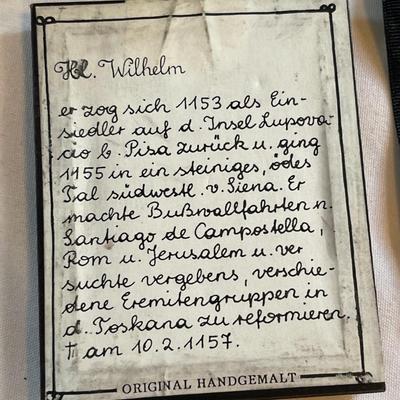 Hl. Wilhelm
er zog sich 1153 als Ein-
siedler auf d. Insel Lupova-
cio b. Pisa zurück u. ging
1155 in ein steiniges, ödes
Tal südwestl. v. Siena. Er
machte Bußwallfahrten n.
Santiago de Campostella,
Rom u. Jerusalem u. ver
suchte vergebens, verschie-
dene Eremitengruppen in
d. Toskana zu reformieren.
† am 10.2.1157.
ORIGINAL HANDGEMALT